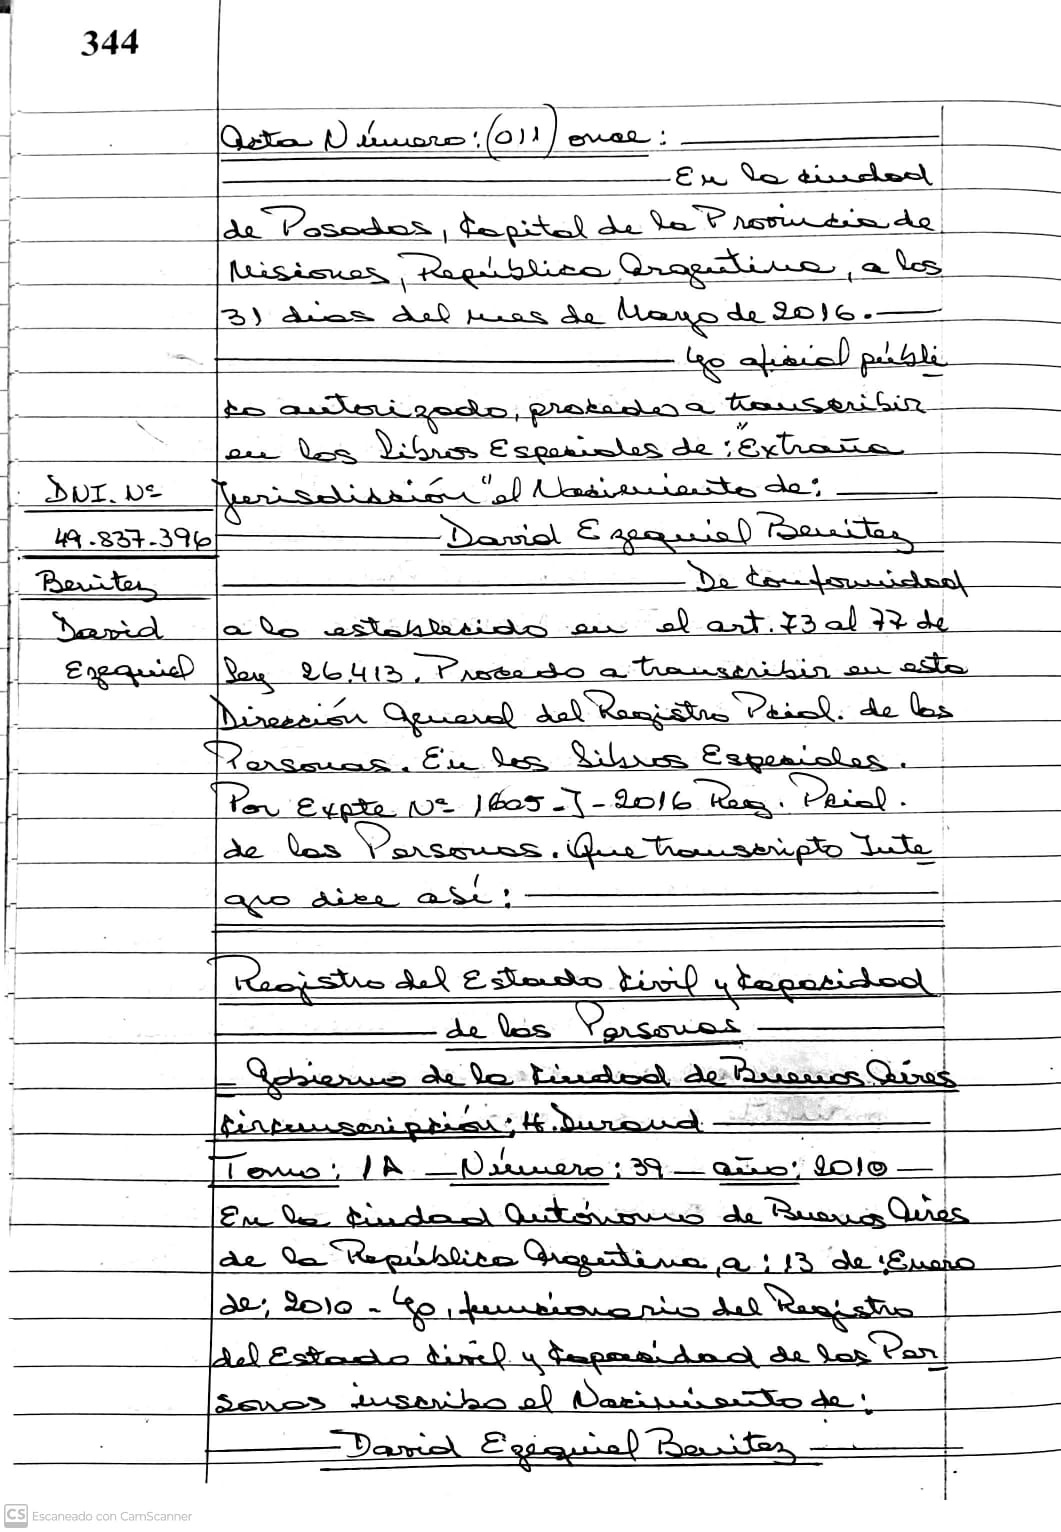 344
Acta Número: (011) once:
En la ciudad
de Posadas, Capital de la Provincia de
Misiones, República Argentina, a los
31 dias del mes de Mayo de 2016.-
Yo oficial públi
co autorizado, procedo a transcribir
en los Libros Especiales de: "Extraña
Jurisdicción" el Nacimiento de:
David Ezequiel Benitez
DNI. Nº
49.837.396
Benitez
David
Ezequiel
De Conformidad
a lo establecido en el art. 73 al 77 de
Ley 26.413. Procedo a transcribir en esta
Dirección General del Registro Pcial. de las
Personas. En los Libros Especiales.
Por Expte Nº 1605-J-2016 Reg. Pcial.
de las Personas. Que transcripto Inte
gro dice así:
Registro del Estado Civil y Capacidad
de las Personas
- Gobierno de la Ciudad de Buenos Aires
Circunscripción: H. Durand
Tomo: 1A - Número: 39 - año: 2010 -
En la Ciudad Autónoma de Buenos Aires
de la República Argentina, a: 13 de: Enero
de: 2010 - Yo, funcionario del Registro
del Estado Civil y Capacidad de las Per
sonas inscribo el Nacimiento de:
David Ezequiel Benitez
CS Escaneado con CamScanner